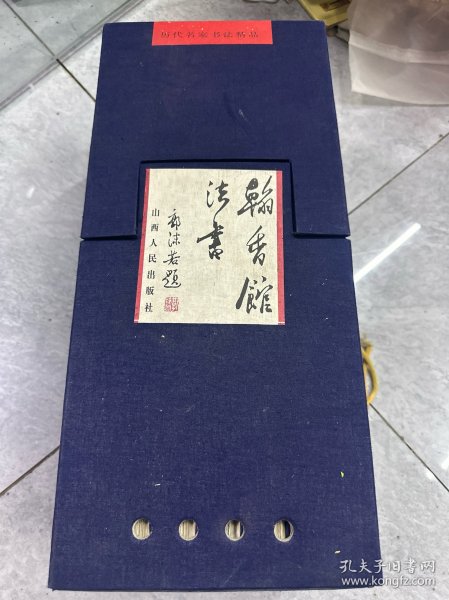 历代名家书法精品
翰香館
法書
郭沫若题
山西人民出版社
孔夫子旧书网
www.kongfz.com